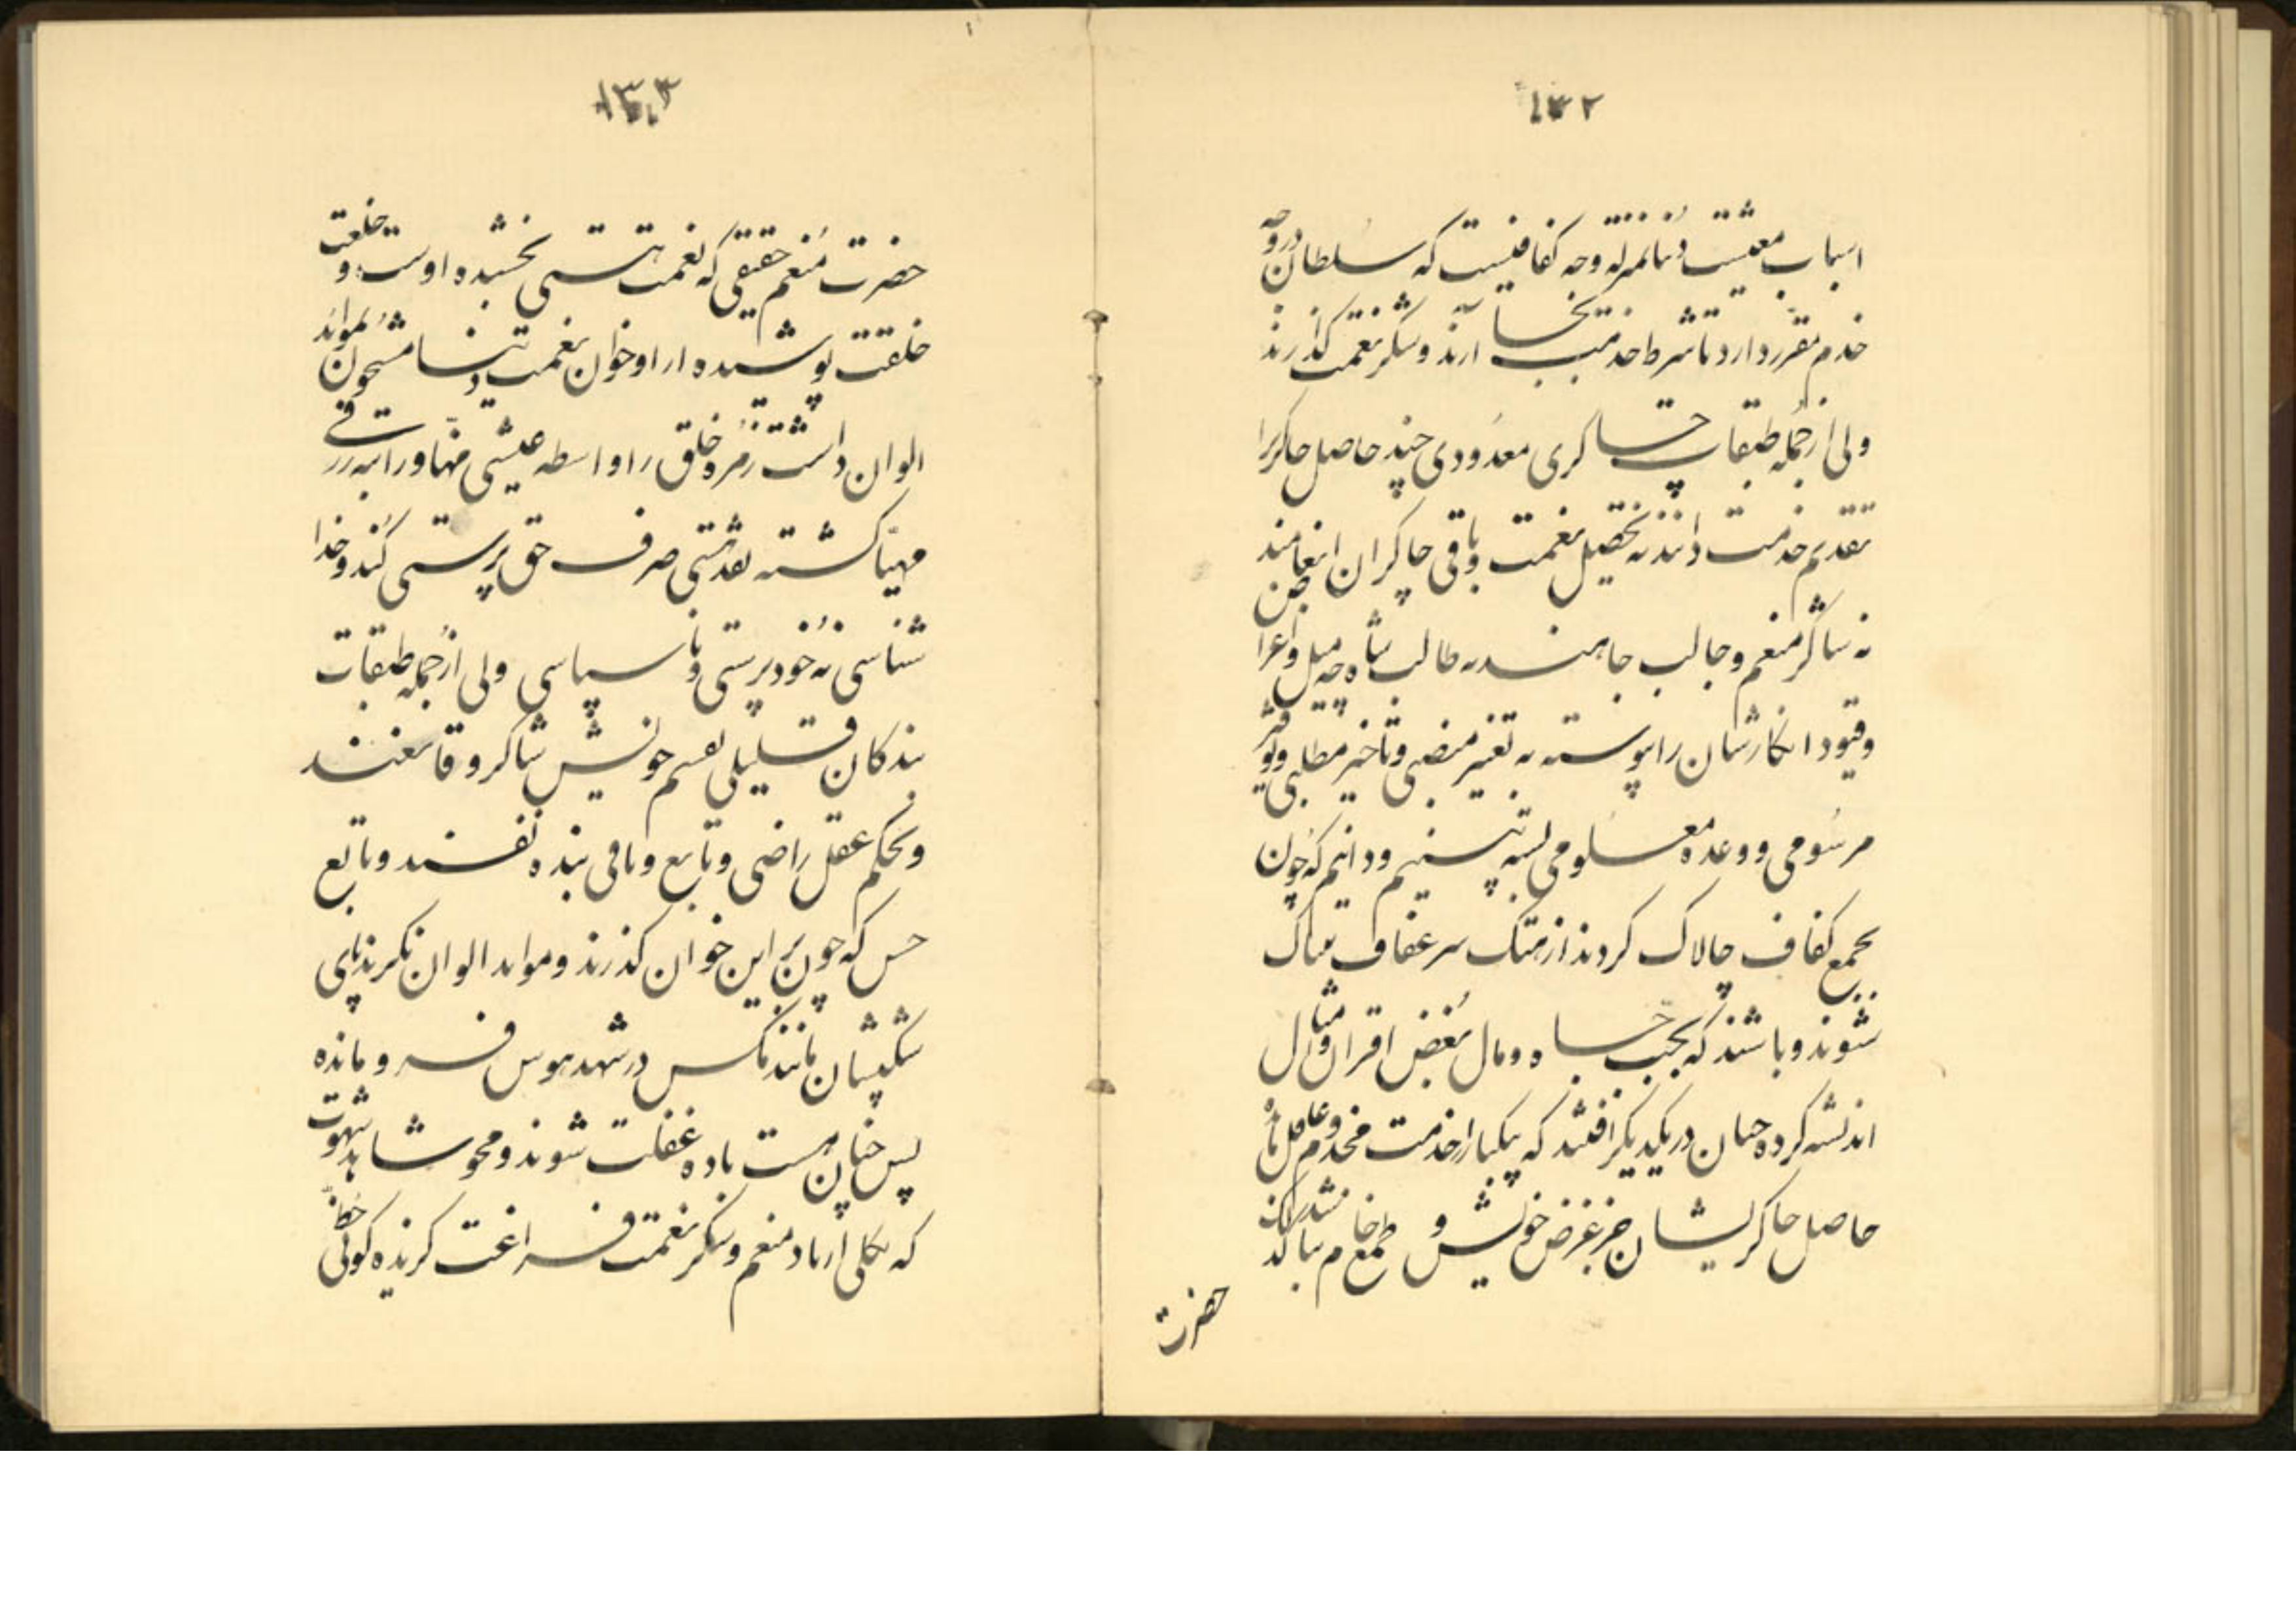 ۱۳۲
اسباب معیشت دنیا بمنزله وجه کفافیست که سلطان در وجه
خدم مقرر دارد تا شرط خدمت بجا آرند و شکر نعمت گذارند
ولی از جمله طبقات چاکری معدودی چند حاصل چاکریرا
تقدیم خدمت دانند نه تحصیل نعمت و باقی چاکران انعامند
نه شاکر منعم و جالب جاهند نه طالب شاه چه میل و اعراض
وقیود انکارشان را پیوسته به تغییر منصبی و تاخیر مطلبی و توفیر
مرسومی و وعده معلومی بسته بینیم و دانیم که چون
بجمع کفاف چالاک گردند از هتک سر عفاف بیباک
شوند و باشند که بجهت جاه و مال بغض اقران و امثال
اندیشه کرده چنان در یکدیگر افتند که یکباره از خدمت مخدوم غافل مانده
حاصل چاکریشان جز غرض خویش و طمع خام نباشد
حضرت
۱۳۳
حضرت منعم حقیقی که نعمت هستی بخشیده اوست و خلعت
خلقت پوشیده از او خوان نعمت دنیا مشحون بموائد
الوان داشت تا زمره خلق را واسطه عیشی مهنا و رابطه رزقی
مهیا گشته نقد هستی صرف حق پرستی کنند و خدا
شناسی نه خودپرستی و ناسپاسی ولی از جمله طبقات
بندگان قلیلی بقسم خویش شاکر و قانعند
و بحکم عقل راضی و تابع و باقی بنده نفسند و تابع
حس که چون بر این خوان گذرند و مواید الوان نگرند پای
شکیبشان مانند مگس در شهد هوس فرو مانده
پس چنان مست باده غفلت شوند و محو شاهد شهوت
که بکلی از یاد منعم و شکر نعمت فراغت گزیده گوئی حظ